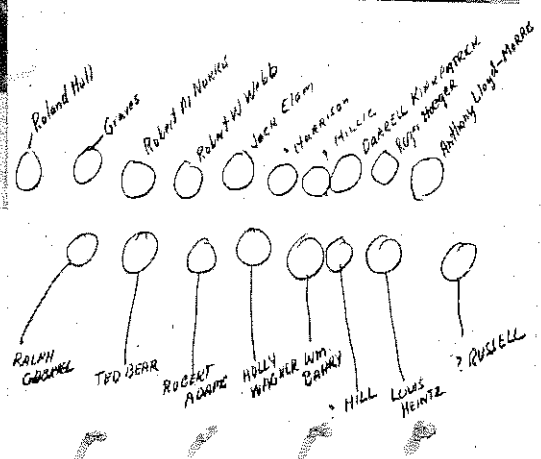 Roland Hull
Graves
Robert M
Robert W Webb
Jack Elam
? HARRISON
? HILLIE
DARRELL KIRKPATRICK
Roger
Anthony Lloyd-Morris
RALPH
TED BEAR
ROBERT
ADAMS
HOLLY
WAGNER
WM
? HILL
LOUIS
HEINTZ
? RUSSELL